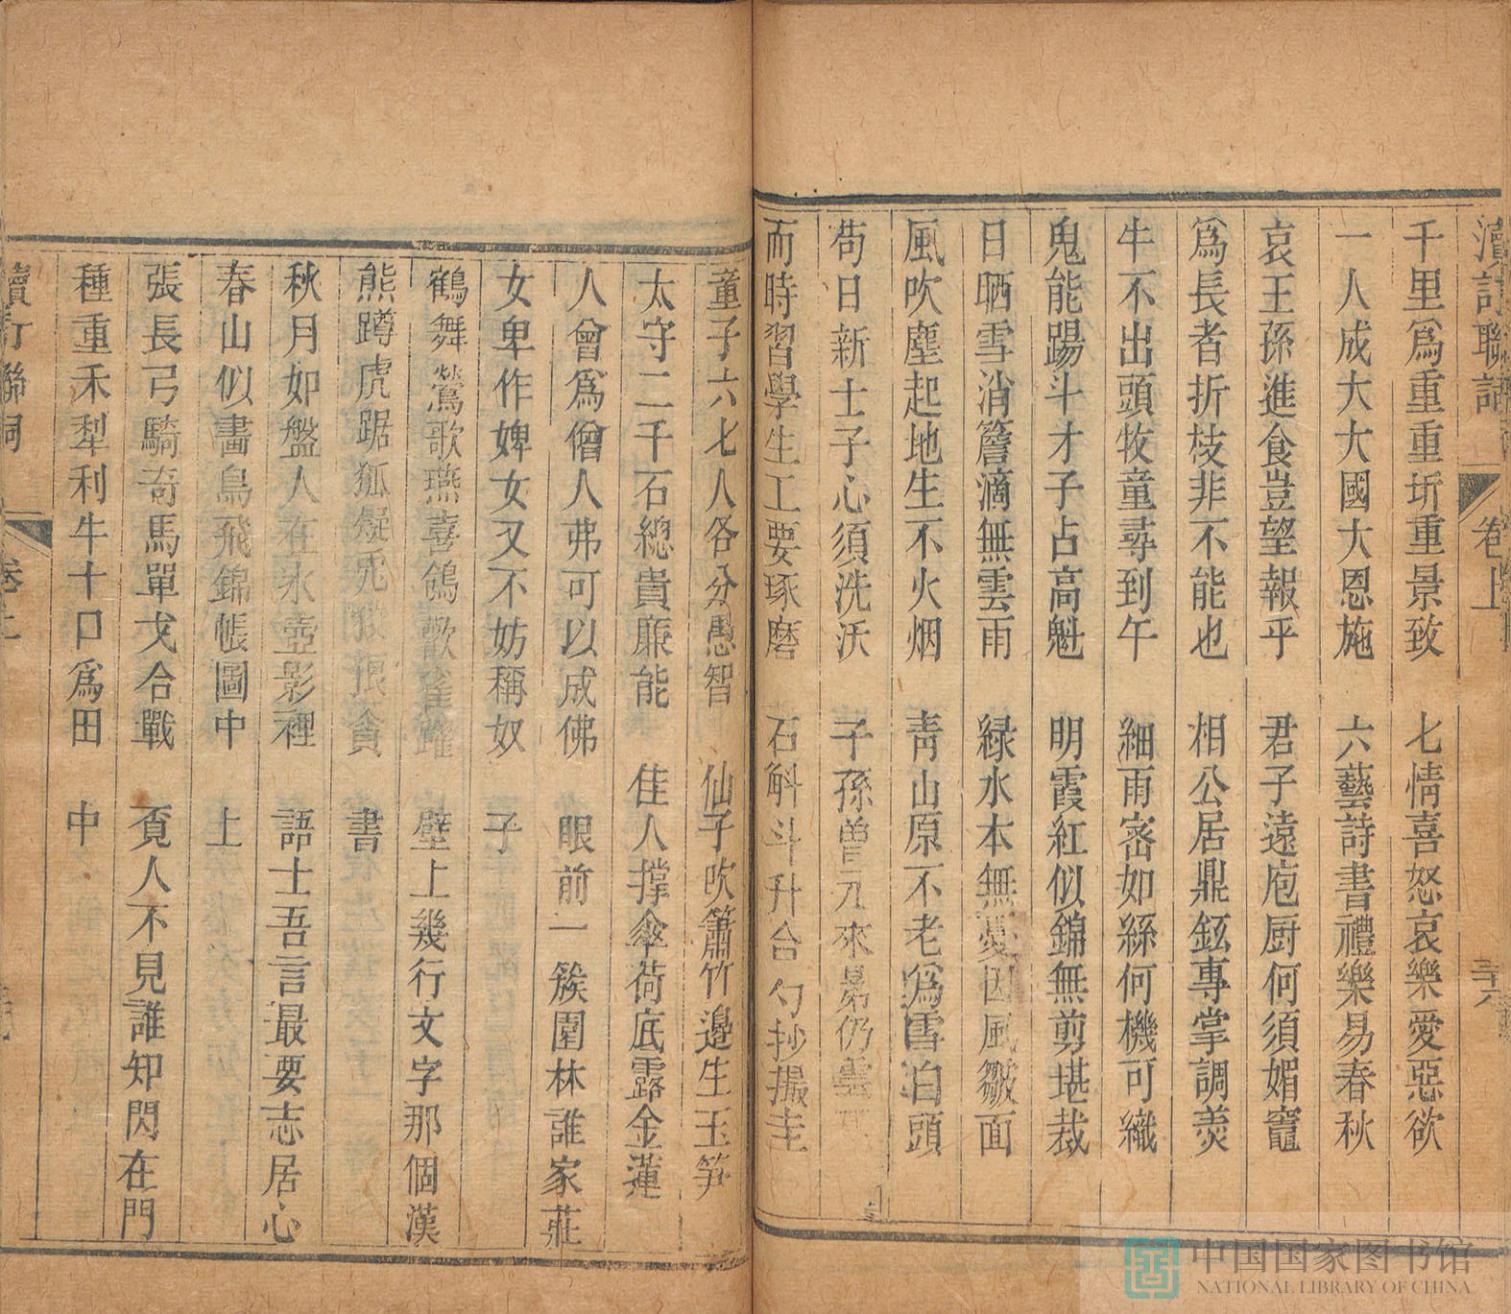 續訂聯話 卷上 三六
千里爲重重圻重景致 七情喜怒哀樂愛惡欲
一人成大大國大恩施 六藝詩書禮樂易春秋
哀王孫進食豈望報乎 君子遠庖厨何須媚竈
爲長者折枝非不能也 相公居鼎鉉專掌調羮
牛不出頭牧童尋到午 細雨宻如絲何機可織
鬼能踢斗才子占高魁 明霞紅似錦無剪堪裁
日晒雪消簷滴無雲雨 緑水本無憂因風皺面
風吹塵起地生不火烟 靑山原不老爲雪白頭
苟日新士子心須洗沃 子孫曽元來晜仍雲
而時習學生工要琢磨 石斛斗升合勺抄撮圭
童子六七人各分愚智 仙子吹簫竹邊生玉笋
太守二千石總貴廉能 佳人撑傘荷底露金蓮
人曾爲僧人弗可以成佛 眼前一簇園林誰家莊
女卑作婢女又不妨稱奴 子
鶴舞鶯歌燕喜鴿歡雀躍 壁上幾行文字那個漢
熊蹲虎踞狐疑兎狡狼貪 書
秋月如盤人在氷壺影裡 語士吾言最要志居心
春山似畵鳥飛錦帳圖中 上
張長弓騎奇馬單戈合戰 覔人不見誰知閃在門
種重禾犁利牛十口爲田 中
續訂聯 卷上
中国国家图书馆
NATIONAL LIBRARY OF CHINA